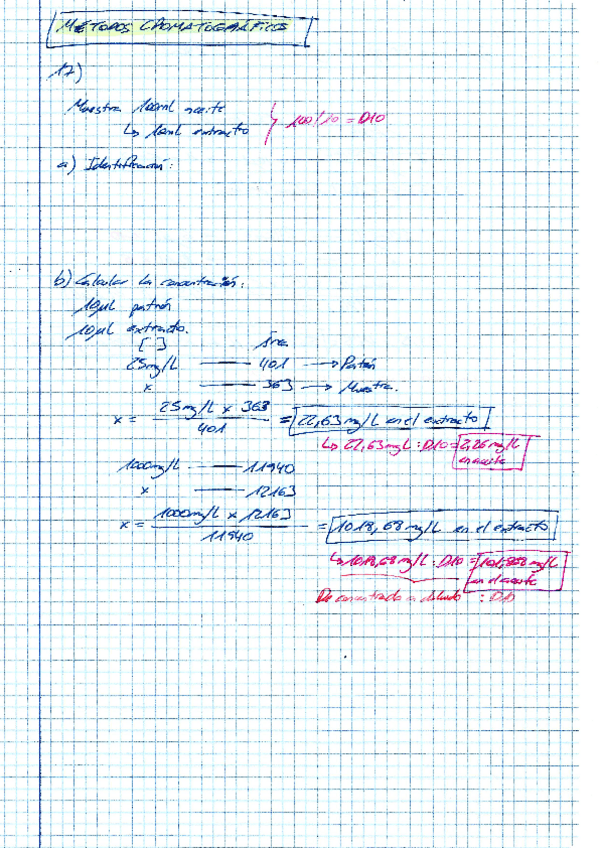 MÉTODOS CROMATOGRÁFICOS
17)
Muestra 100ml aceite
↳ 10ml extracto
100/10 = D10
a) Identificación:
b) Calcular la concentración:
10µL patrón
10µL extracto.
[ ] Área
25mg/L — 401 → Patrón
x — 363 → Muestra.
x = 25mg/L x 363 / 401 = 22,63 mg/L en el extracto
↳ 22,63mg/L : D10 = 2,26 mg/L en aceite
1000mg/L — 11940
x — 12163
x = 1000mg/L x 12163 / 11940 = 1018,68 mg/L en el extracto
↳ 1018,68 mg/L : D10 = 101,868 mg/L en el aceite
De concentrado a diluido : D10